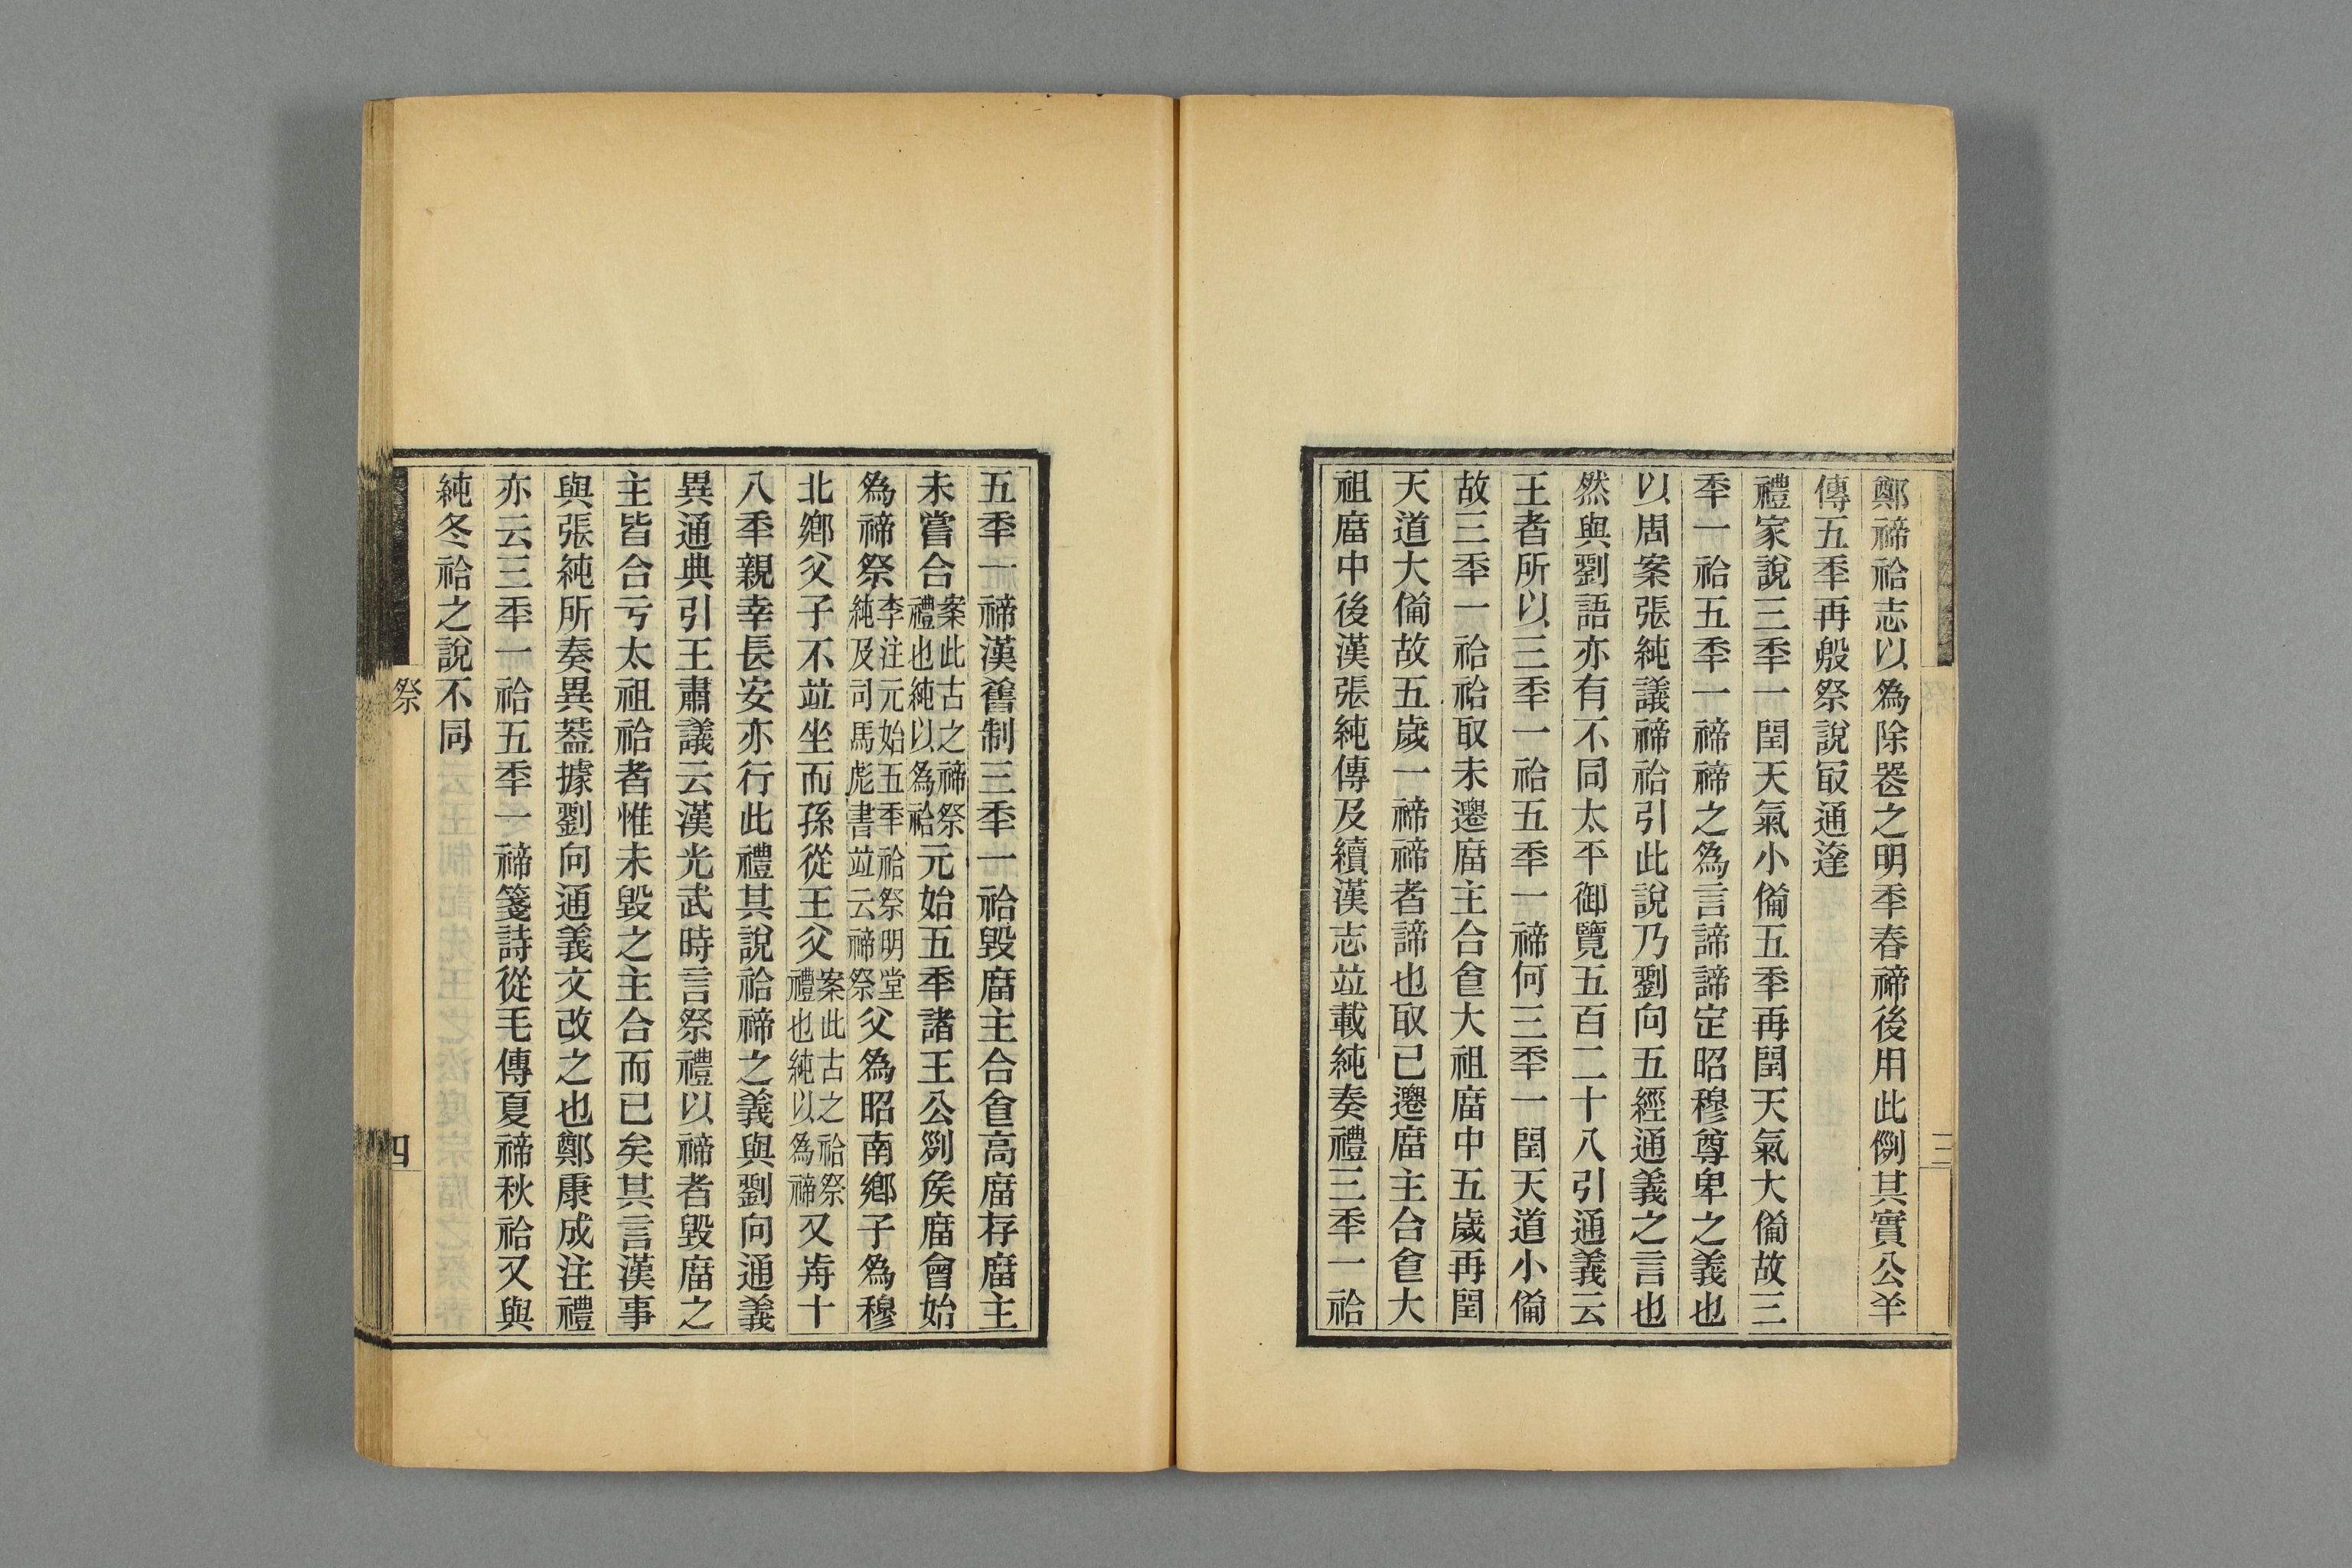 鄭禘祫志以爲除器之明秊春禘後用此㓡其實公羊
傳五秊再殷祭說冣通達
禮家說三秊一閏天氣小僃五秊再閏天氣大僃故三
秊一祫五秊一禘禘之爲言諦諦定昭穆尊卑之義也
以周案張純議禘祫引此說乃劉向五經通義之言也
然與劉語亦有不同太平御覽五百二十八引通義云
王者所以三秊一祫五秊一禘何三秊一閏天道小僃
故三秊一祫祫取未遷庿主合食大祖庿中五歲再閏
天道大僃故五歲一禘禘者諦也取已遷庿主合食大
祖庿中後漢張純傳及續漢志竝載純奏禮三秊一祫
三
五秊一禘漢舊制三秊一祫毀庿主合食高庿存庿主
未嘗合案此古之禘祭禮也純以爲祫元始五秊諸王公列矦庿會始
爲禘祭李注元始五秊祫祭明堂純及司馬彪書竝云禘祭父爲昭南鄉子爲穆
北鄉父子不竝坐而孫從王父案此古之祫祭禮也純以爲禘又歬十
八秊親幸長安亦行此禮其說祫禘之義與劉向通義
異通典引王肅議云漢光武時言祭禮以禘者毀庿之
主皆合亏太祖祫者惟未毀之主合而已矣其言漢事
與張純所奏異葢據劉向通義文改之也鄭康成注禮
亦云三秊一祫五秊一禘箋詩從毛傳夏禘秋祫又與
純冬祫之說不同
祭
四